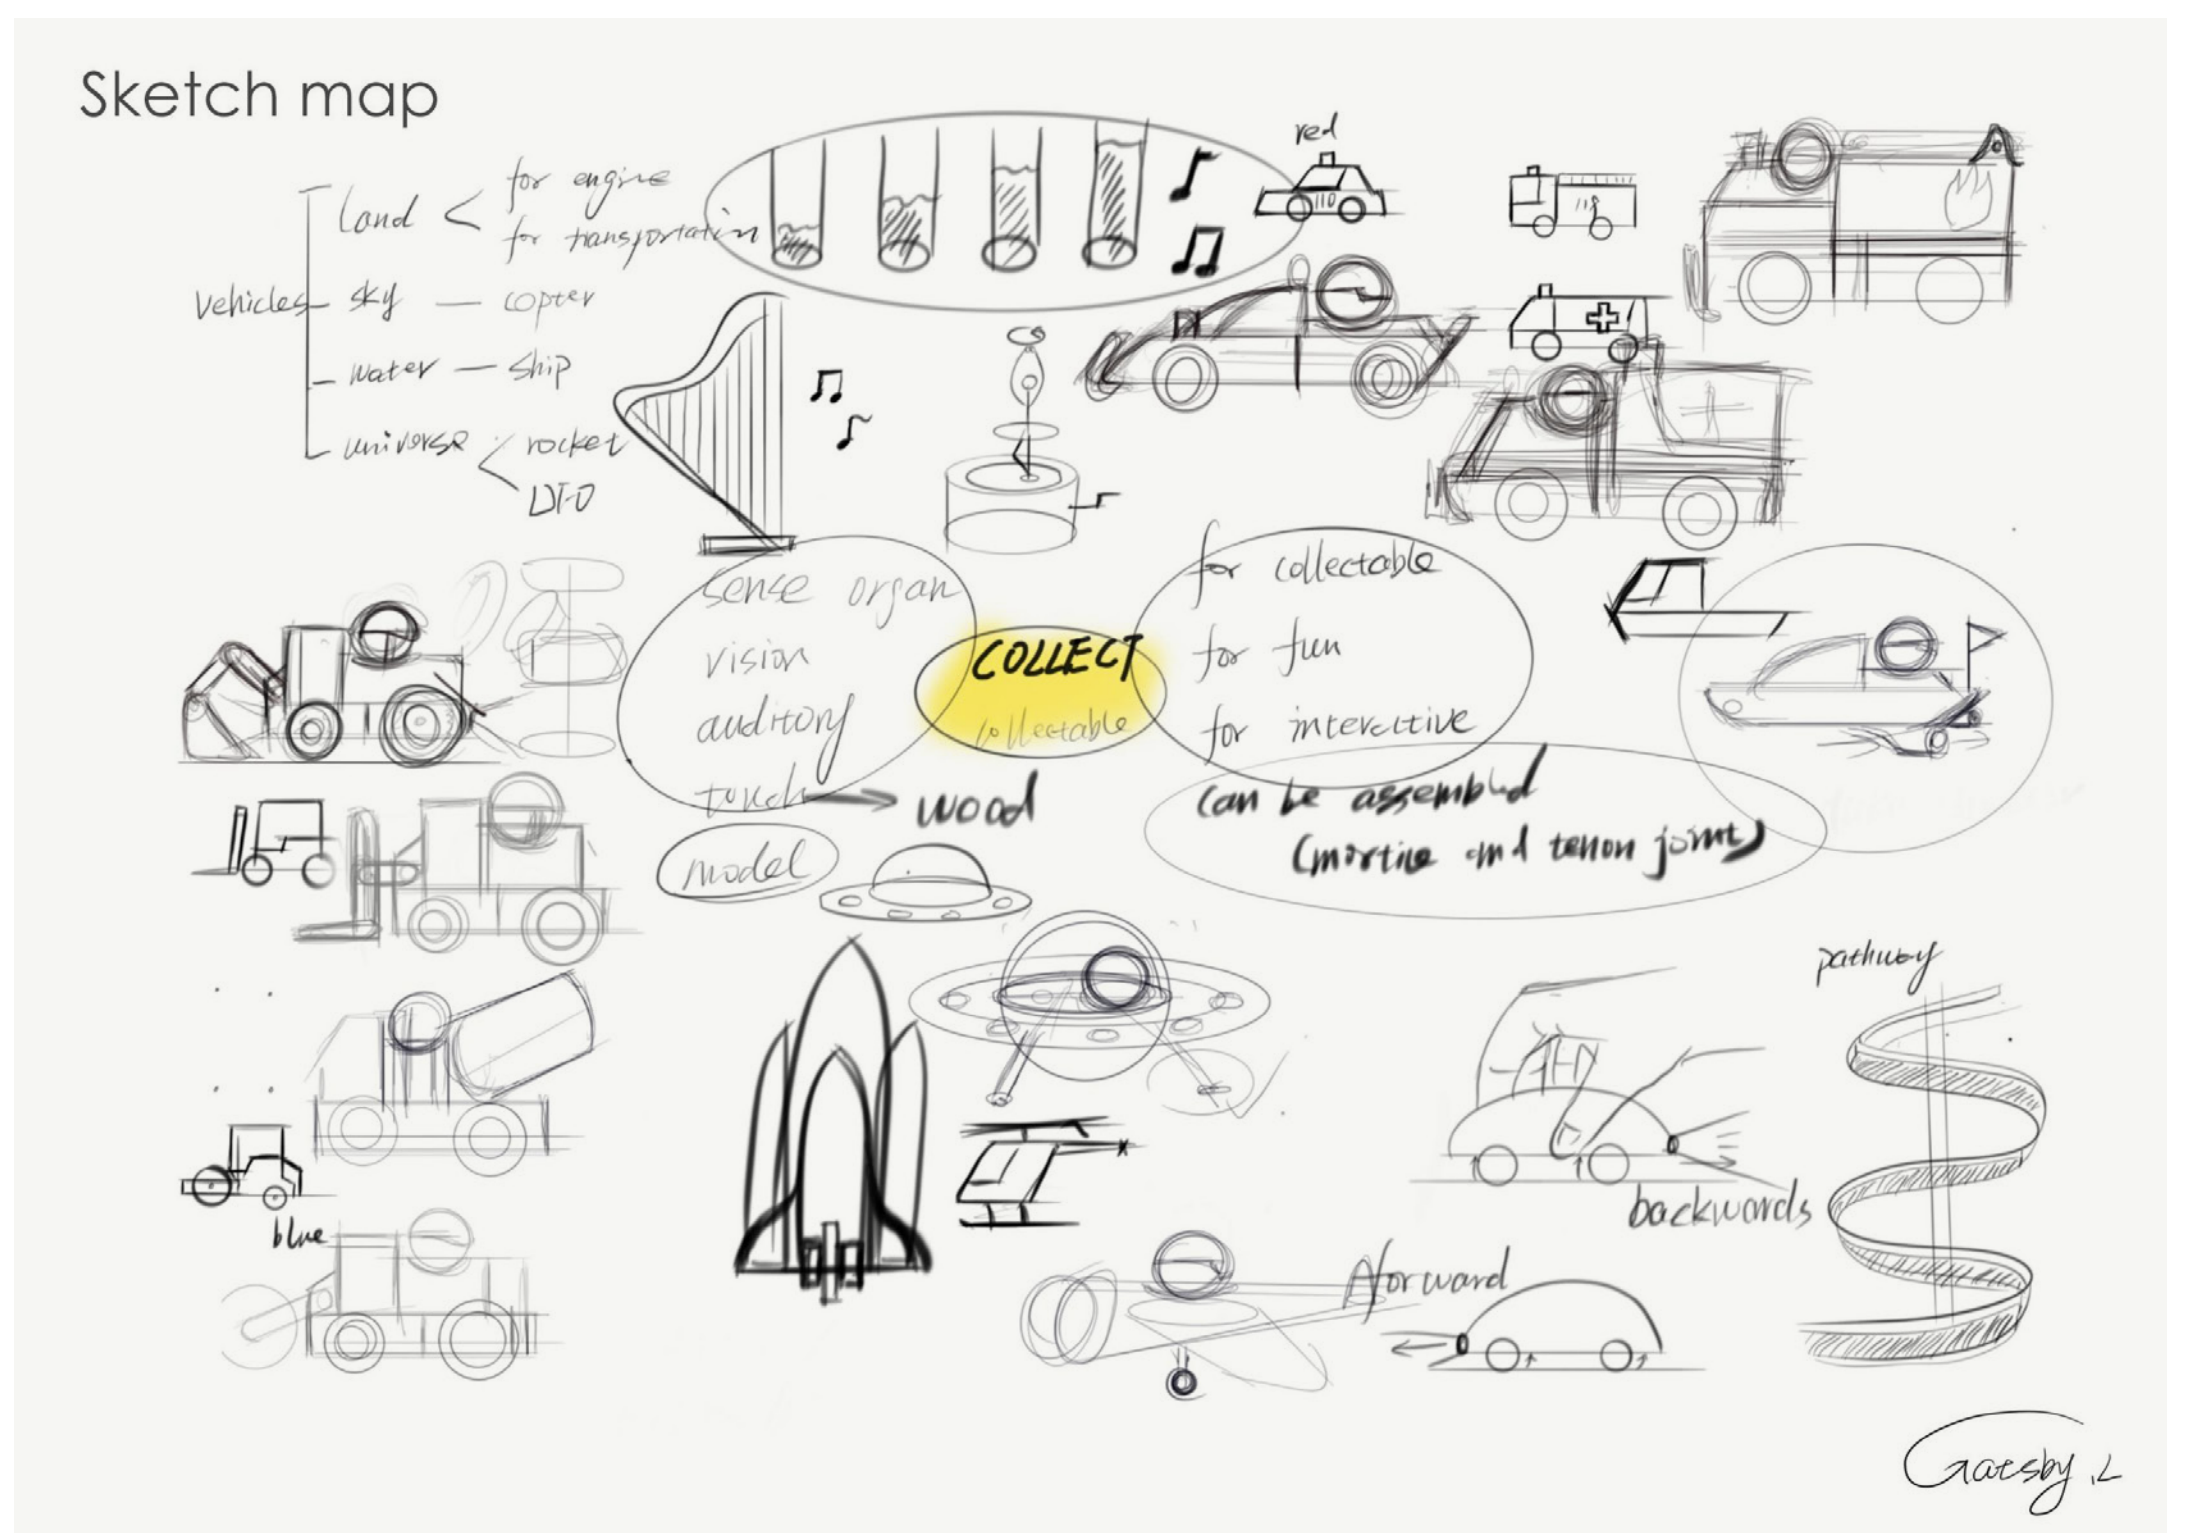 Sketch map
red
for engine
Land
for transportation
110
119
Vehicles
sky — copter
water — ship
universe
rocket
UFO
sense organ
vision
auditory
touch → wood
model
COLLECT
collectable
for collectable
for fun
for interective
can be assembled
(mortise and tenon joint)
pathway
backwards
forward
blue
Gatsby .L